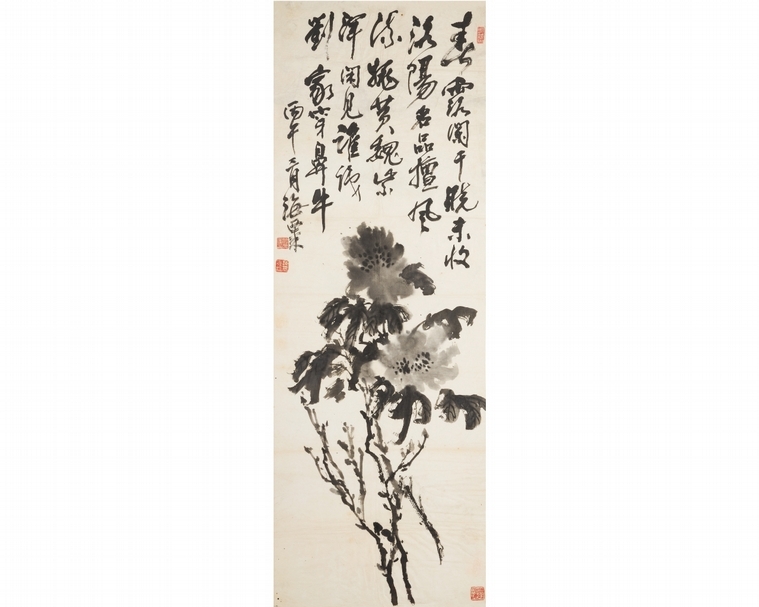 春露闌干曉未收
洛陽名品擅風
流姚黃魏紫
渾閑見誰識
劉家穿鼻牛
丙午三月海粟